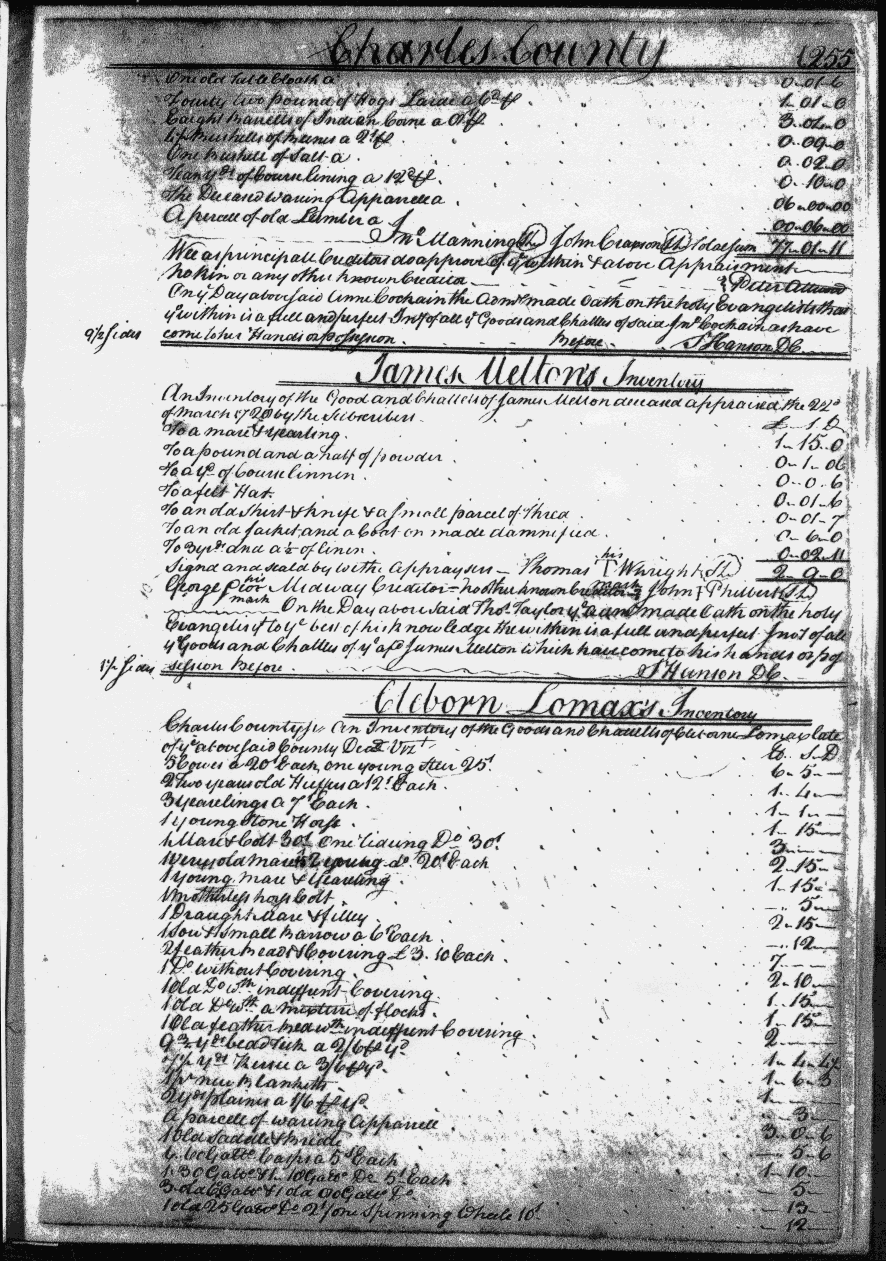 Charles County 1255
One old Table Cloath a 0-01-6
Fourty two pound of Hogs Lard a 6d 1-01-0
Eaight Barrells of Indian Corne a 3-0-0
Bushells of Beanes a 2 0-09-0
One Bushell of Salt a 0-02-0
Tean yds of Course lining a 12d 0-10-0
The Deceasd waring Apparrell a 06-00-00
A percell of old Lumber a 00-06-00
Jno Manning John totae sum 77-01-11
Wee as principall Creditors do approve of ye within & above Appraisment
no kin or any other known Creditor Peter
On ye Day abovesaid Anne Cochain the Admx made Oath on the holy Evangelists that
ye within is a full and perfect Invy of all ye Goods and Chattles of said Jno Cochain as have
9 1/2 Sides come to her Hands or possession. Before S Hanson D C
James Melton's Inventory
An Inventory of the Good and Chattells of James Melton deceased appraised the 22d
of March 1720 by the Subscribers £ S D
To a mare & yearling. 1-15-0
To a pound and a half of powder 0-1-06
To a yd of Course linnen. 0-0-6
To a felt Hat 0-01-6
To an old Shirt & knife & a small parcel of Thred 0-01-7
To an old Jacket, and a Coat on made damnified 0-6-0
To 3 yds and a 1/2 of linen. 0-02-11
Signd and seald by us the Appraysers Thomas his T Wright 2-9-0
George his Midway Creditor no other known Creditor mark John Philbert
mark On the Day abovesaid Thos Taylor ye adm made Oath on the holy
Evangelis yt to ye best of his knowledge the within is a full and perfect Invt of all
ye Goods and Chattles of ye afd James Melton which have come to his hands or pos
1 1/2 Sides session Before S Hanson D C
Cleborn Lomax's Inventory
Charles County ss An Inventory of the Goods and Chattells of Cleborne Lomax late
of ye abovesaid County Decd Vizt lb S D
5 Cowes a 20s Each, one young Steer 25s 6-5-
2 Two years old Heffers a 12s Each 1-4-
3 yearelings a 7s Each 1-1-
1 young Stone Horse 1-15-
1 Mare & Colt 30s One Riding Do 30s 3-
1 very old mare & 2 young do 20s Each 2-15-
1 young mare & yearling 1-15-
1 motherless horse Colt 5-
1 Draught Mare & filley 2-15-
1 Sow & small Barrow a 6s Each -12-
2 feather Beads & Covering £3.10 Each 7-
1 Do without Covering 2-10-
1 old Do wth indifferent Covering 1-15-
1 old Do wth a mixture of flocks 1-15-
1 Old feather Bead wth indifferent Covering 2-
9 3/4 yds bead Tick a 2/6 yd 1-4-4 1/2
yds Kersie a 3/6 yd 1-6-3
1 pr new Blankets 1-
2 yds plaines a 1/6 yd -3-
A parcell of waring Apparrell 3-0-6
1 Old Saddle & bridle -5-6
6 Gallo Casks a 5s Each 1-10-
1 30 Gallo & 1 10 Gallo Do 5s Each -5-
3 old Gallo & 1 old Gallo Do -13-
1 old 25 Gallo Do 2s/ one Spinning Wheele 10s -12-